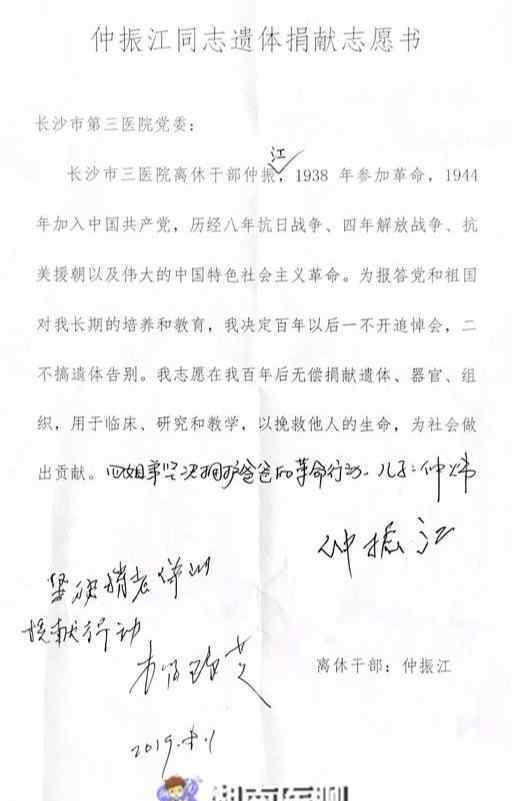 仲振江同志遗体捐献志愿书
长沙市第三医院党委：
江
长沙市三医院离休干部仲振，1938 年参加革命，1944
年加入中国共产党，历经八年抗日战争、四年解放战争、抗
美援朝以及伟大的中国特色社会主义革命。为报答党和祖国
对我长期的培养和教育，我决定百年以后一不开追悼会，二
不搞遗体告别。我志愿在我百年后无偿捐献遗体、器官、组
织，用于临床、研究和教学，以挽救他人的生命，为社会做
出贡献。四姐弟坚决拥护爸爸的革命行动。儿子：仲炜
仲振江
坚决
捐献行动
离休干部：仲振江
2019.